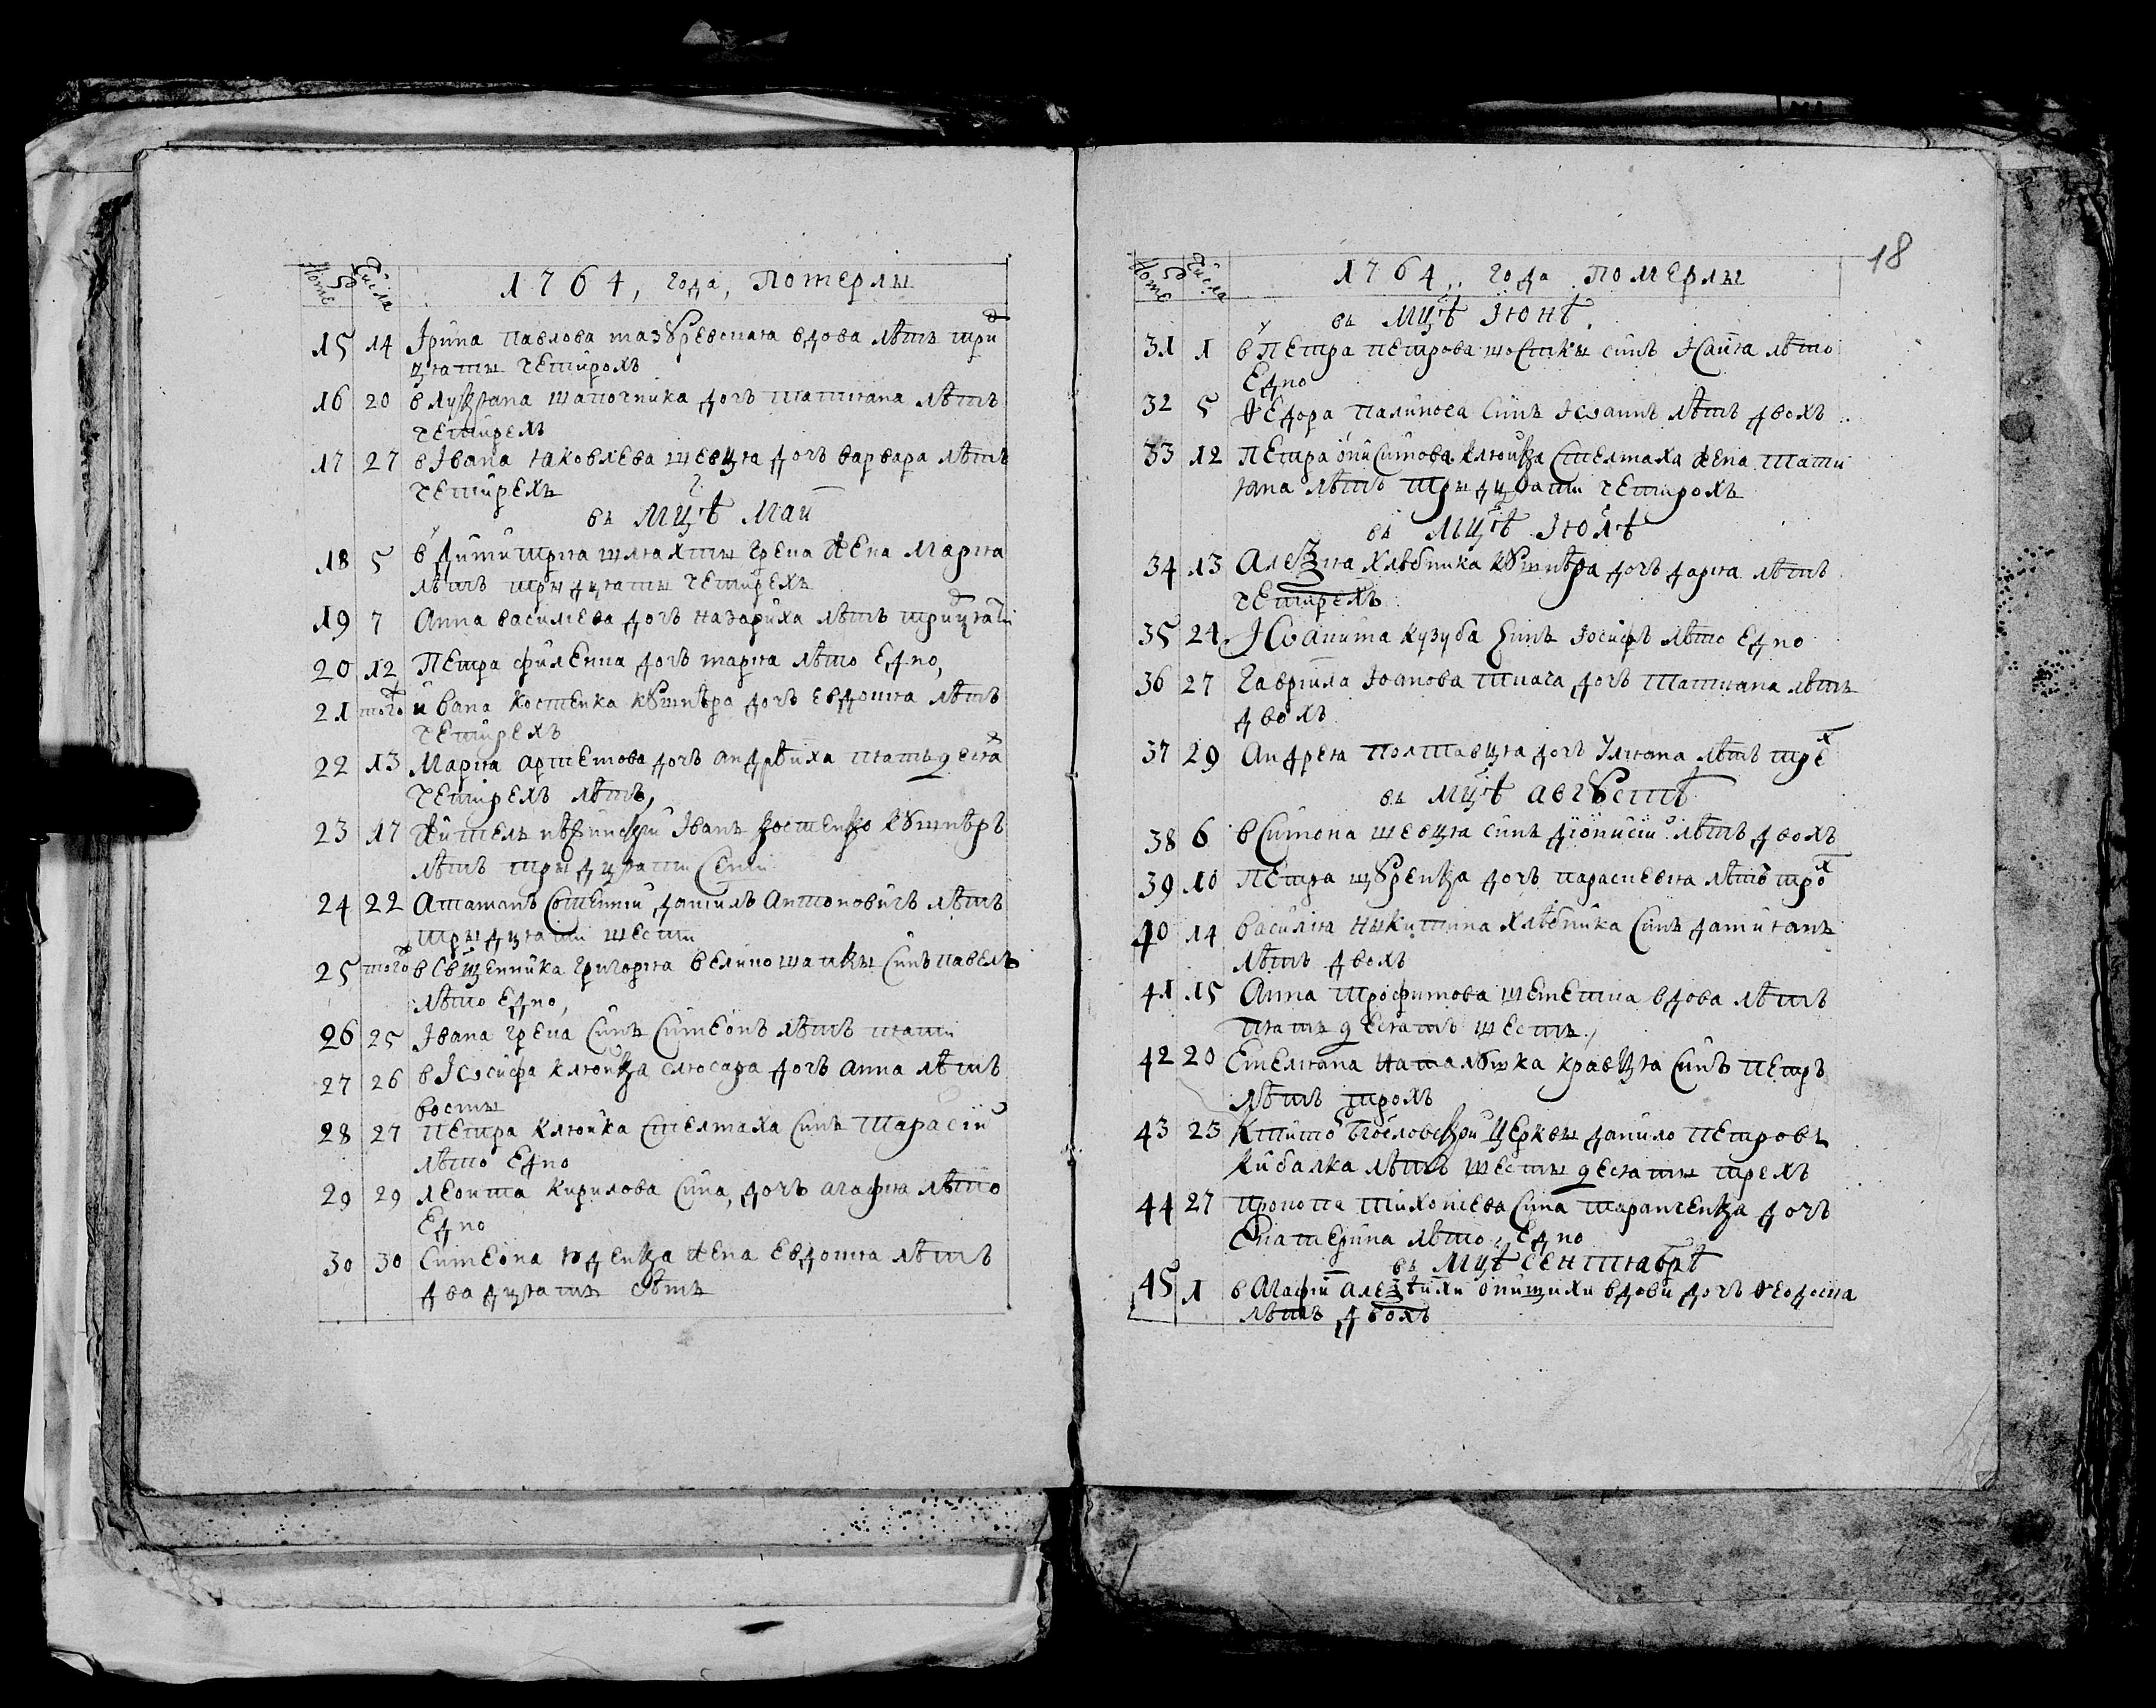 Номеръ Числа 1764, года, Померлы
15 14 Ірина павлова мазȣревская вдова лѣтъ трид
цяты чотирохъ
16 20 в лукіана шапочника дочъ татіана лѣтъ
четирехъ
17 27 в Івана яковлева шевця дочъ варвара лѣтъ
четирехъ
въ мцѣ Маи
18 5 в Димитрия шляхты грека жена Мария
лѣтъ трыдцяты четирехъ
19 7 Анна василева дочъ назариха лѣтъ трийцяти
20 12 Петра филенка дочъ мария лѣто едно,
21 того ивана костенка кȣшнѣра дочъ евдокия лѣтъ
четирехъ
22 13 Мария артемова дочъ андрѣиха пятьдеся
четирехъ лѣтъ,
23 17 житель нѣжинский Іванъ костенко кȣшнѣръ
лѣтъ трыдцяти семи
24 22 Атаманъ сотенний даниль антоновичъ лѣтъ
трыдцяти шести
25 того в свщенника григория великошапки синъ павелъ
лѣто едно,
26 25 Івана грека синъ симеонъ лѣтъ пяти
27 26 в Іѡсифа клюйка слюсара дочъ анна лѣтъ
восмы
28 27 петра клюйка стелмаха синъ тарасій
лѣто едно
29 29 леонта кирилова сина, дочъ агафия лѣто
едно
30 30 симеона юденка жена евдокия лѣтъ
двадцять сѣмъ
18
Номеръ Числа 1764,, года Померлы
въ мцѣ Іюнѣ.
31 1 в Петра петрова шостки синъ Ісаия лѣто
едно
32 5 Ѳедора палия синъ Іѡаннъ лѣтъ двохъ
33 12 Петра онисимова клюйка стелмаха жена тати
яна лѣтъ трыдцяти четирохъ
въ мцѣ Іюлѣ
34 13 Алеѯия хлѣбника кȣшнѣра дочъ дария лѣтъ
четирехъ
35 24 Іѡанита кузуба синъ Іосифъ лѣто едно
36 27 Гавриила Іоанова ткача дочъ татіана лѣтъ
двохъ
37 29 Андрея полтавця дочъ уліяна лѣтъ трех
въ мцѣ авгȣстѣ
38 6 в симона шевця синъ діонисій лѣтъ двохъ
39 10 Петра щȣренка дочъ параскевия лѣтъ трох
40 14 василія никитина хлѣбника синъ даміанъ
лѣтъ двохъ
41 15 Анна трофимова шеметка вдова лѣтъ
пятьдесятъ шесть,
42 20 Емеліана наталȣшка кравця синъ петръ
лѣтъ трохъ
43 23 Ктиторъ Бгословской церквы данило петровъ
кибалка лѣтъ шестьдесяты трехъ
44 27 прокопа тихонова сина таранченка дочъ
екатерина лѣто, едно
въ мцѣ сентяврѣ
45 1 в агафіи алеѯѣихи вдови дочъ ѳеодосия
лѣтъ двохъ